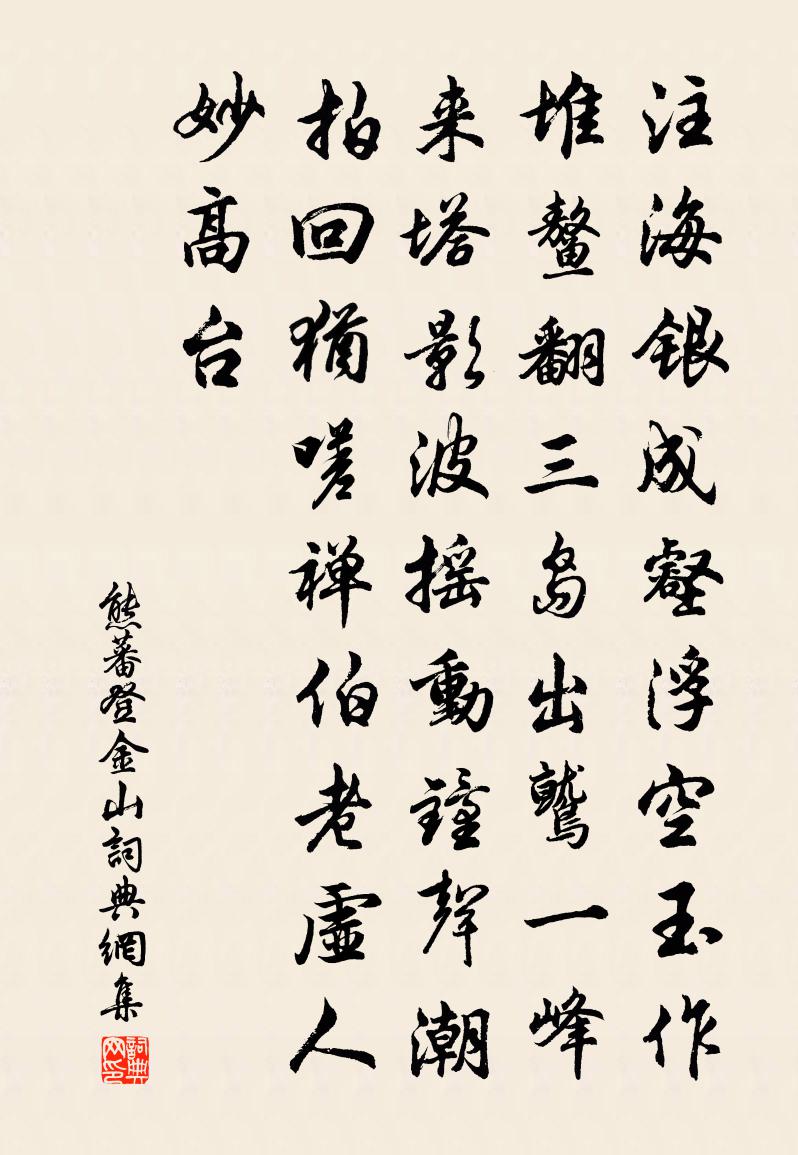 注海银成壑浮空玉作
堆鳌翻三岛出鹫一峰
来塔影波摇動鐘聲潮
拍回猶嗟禅伯老虚人
妙高台
熊蕃登金山詞典網集
詞典网